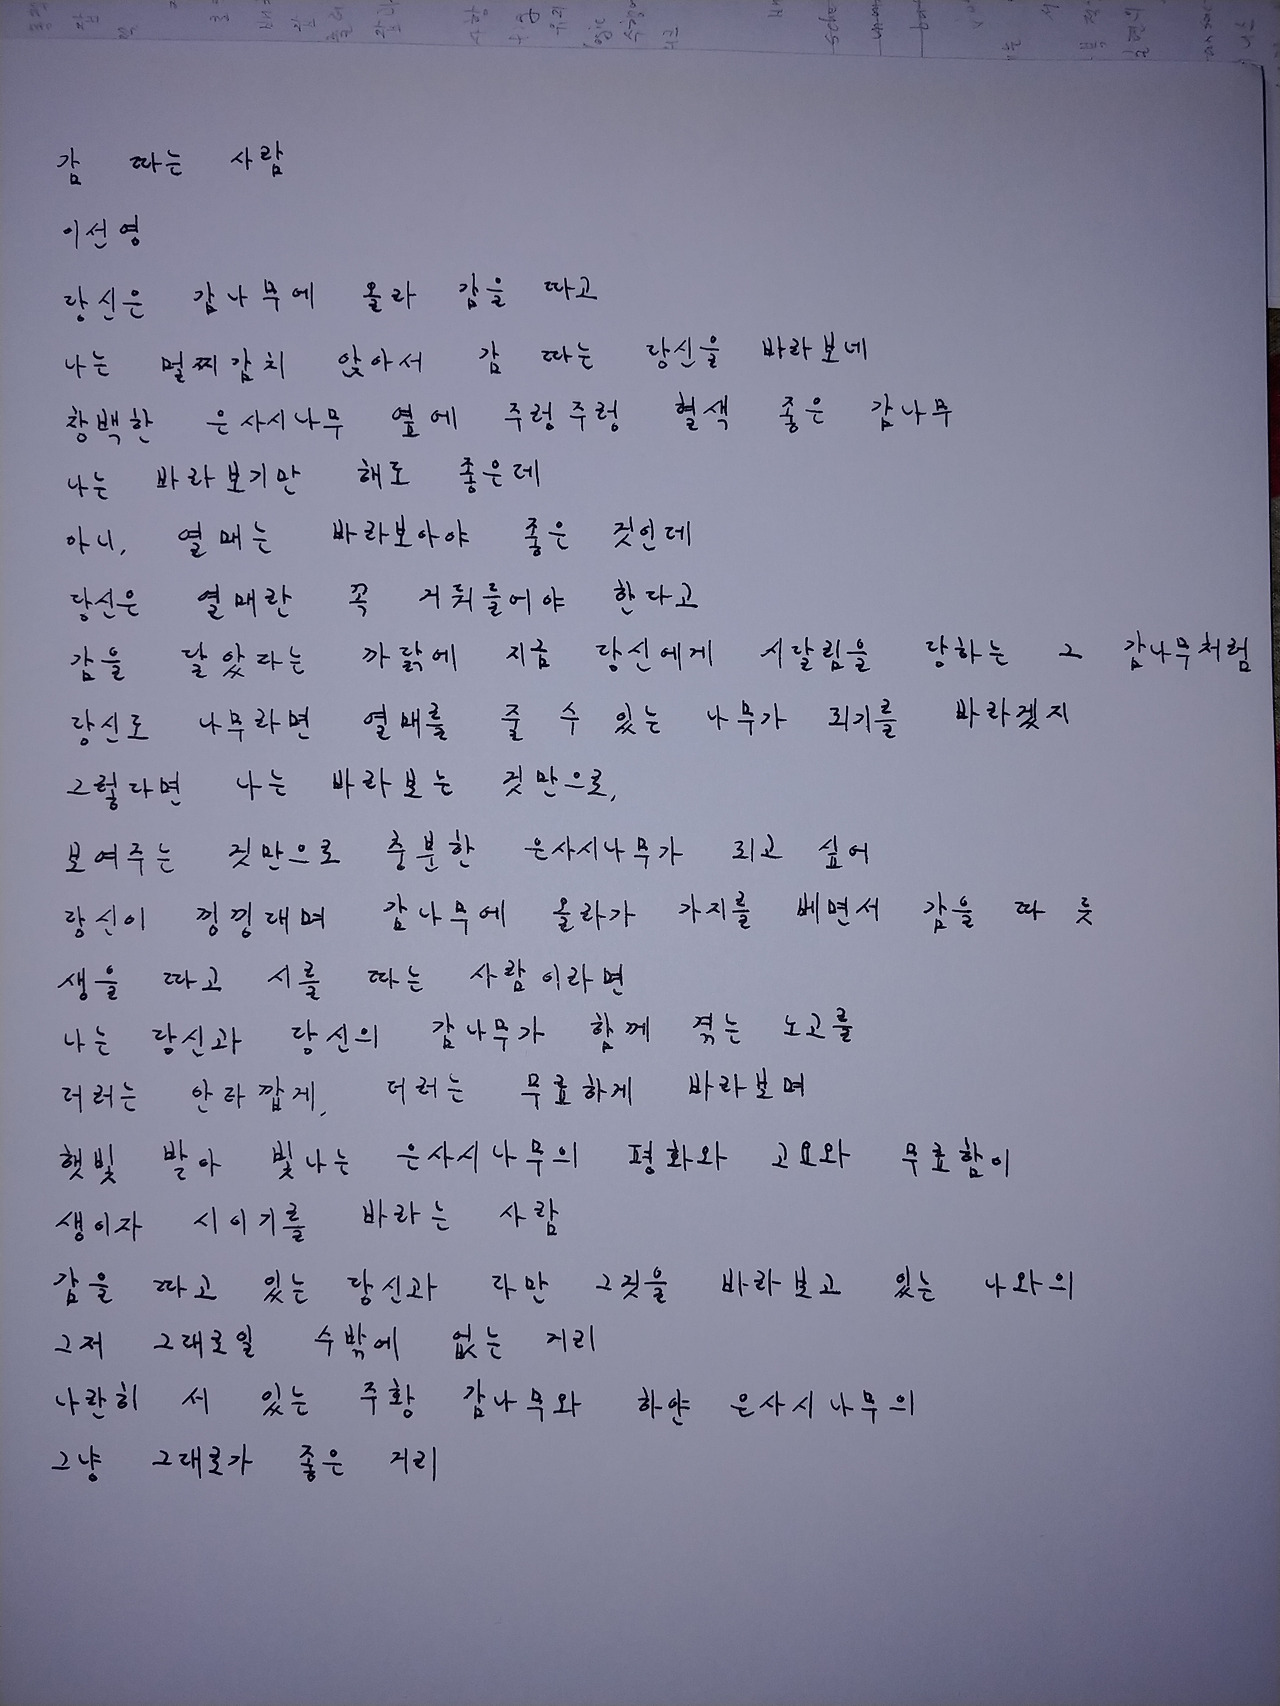 감 따는 사람
이선영
당신은 감나무에 올라 감을 따고
나는 멀찌감치 앉아서 감 따는 당신을 바라보네
창백한 은사시나무 옆에 주렁주렁 혈색 좋은 감나무
나는 바라보기만 해도 좋은데
아니, 열매는 바라보아야 좋은 것인데
당신은 열매란 꼭 거둬들어야 한다고
감을 달았다는 까닭에 지금 당신에게 시달림을 당하는 그 감나무처럼
당신도 나무라면 열매를 줄 수 있는 나무가 되기를 바라겠지
그렇다면 나는 바라보는 것만으로,
보여주는 것만으로 충분한 은사시나무가 되고 싶어
당신이 낑낑대며 감나무에 올라가 가지를 베면서 감을 따 듯
생을 따고 시를 따는 사람이라면
나는 당신과 당신의 감나무가 함께 겪는 노고를
더러는 안타깝게, 더러는 무료하게 바라보며
햇빛 받아 빛나는 은사시나무의 평화와 고요와 무료함이
생이자 시이기를 바라는 사람
감을 따고 있는 당신과 다만 그것을 바라보고 있는 나와의
그저 그대로일 수밖에 없는 거리
나란히 서 있는 주황 감나무와 하얀 은사시나무의
그냥 그대로가 좋은 거리